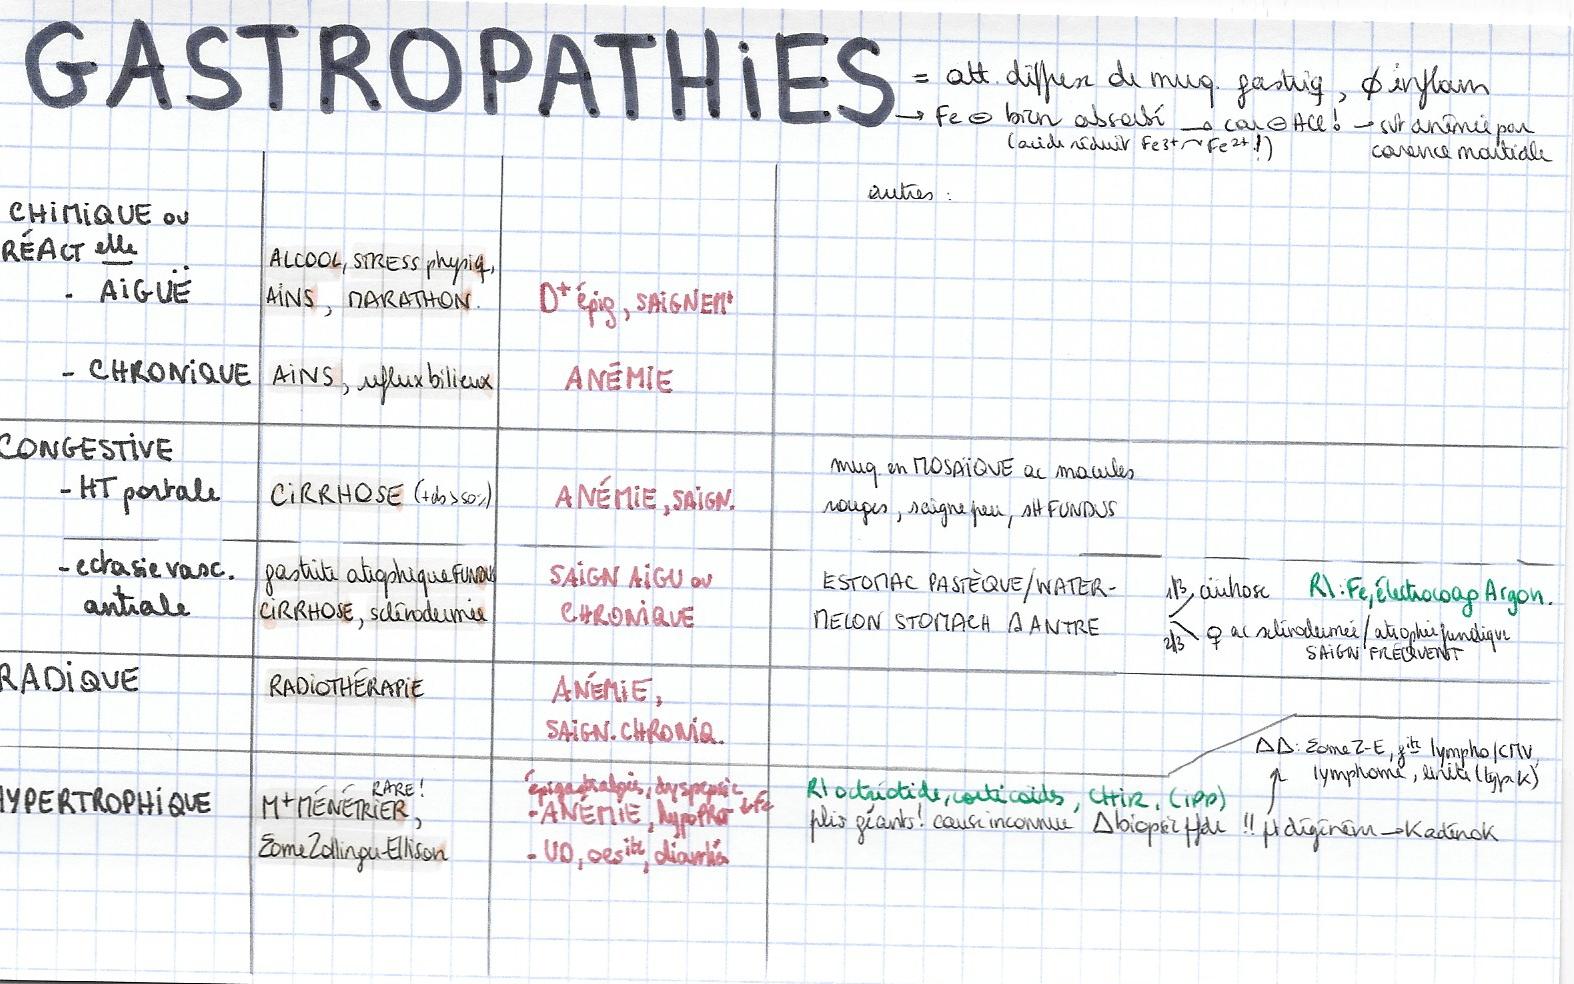 GASTROPATHiES
= att. diffuse de muq. gastriq, ϕ inflam
→ Fe ⊖ bien absorbé → car ⊖ HCl! → svt anémie par
(acide réduit Fe3+ ~ Fe2+!) carence martiale
autres :
CHiMiQUE ou
RÉACT elle
- AiGUË
ALCOOL, STRESS physiq,
AiNS, MARATHON.
D+ épig, SAiGNEMt
- CHRONiQUE
AiNS, reflux bilieux
ANÉMiE
CONGESTiVE
- HT portale
CiRRHOSE (+ds > 50%)
ANÉMiE, SAiGN.
muq en MOSAÏQUE ac macules
rouges, saigne peu, st FUNDUS
- ectasie vasc.
antrale
gastrite atrophique FUNDUS
CiRRHOSE, sclérodermie
SAiGN AiGU ou
CHRONiQUE
ESTOMAC PASTÈQUE/WATER-
MELON STOMACH Δ ANTRE
1/3, cirrhose
2/3 ♀ ac sclérodermie/atrophie fundique
SAiGN FRÉQUENT
R\ : Fe, électrocoag Argon.
RADiQUE
RADiOTHÉRAPiE
ANÉMiE,
SAiGN. CHRONiQ.
HYPERTROPHiQUE
RARE!
M+ MÉNÉTRiER,
Σome Zollinger-Ellison
épigastralgies, dyspepsie
- ANÉMiE, hypoProt ↓Fe
- UD, oesite, diarrhée
R\ octréotide, corticoïdes, CHiR, (iPP)
plis géants! cause inconnue Δ biopsie !! → K
ΔΔ: Σome Z-E, gite lympho/CMV,
lymphome, linite (type K)